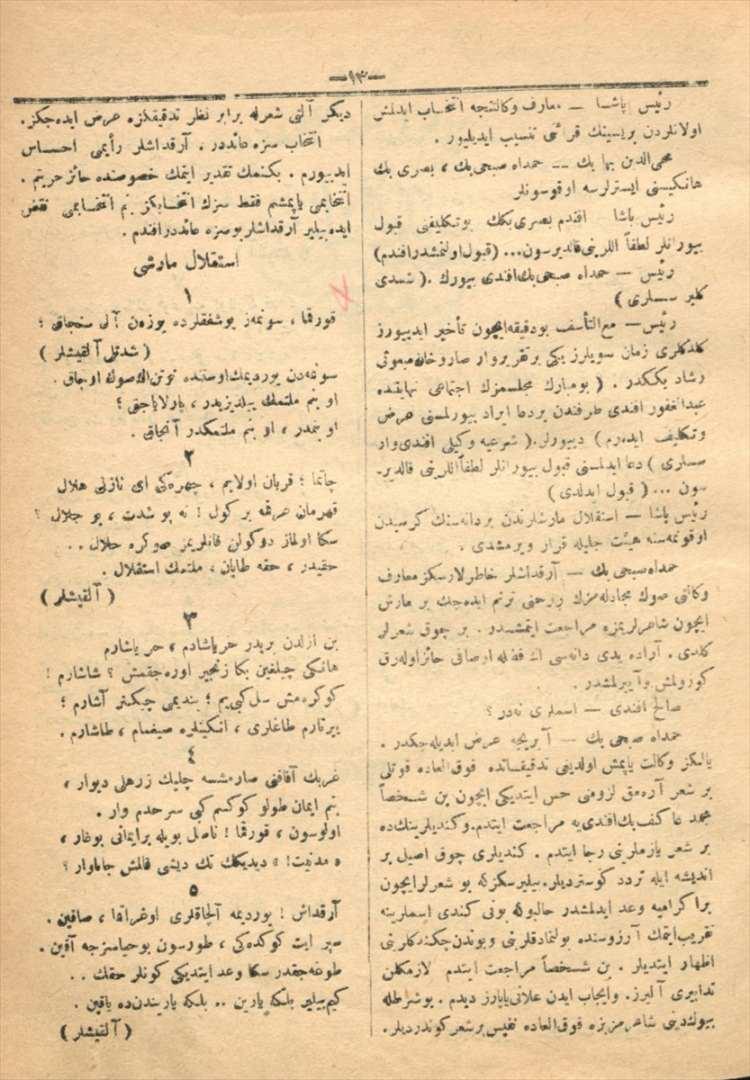 — ١٣ —
رئيس پاشا — معارف وكالتنجه انتخاب ايدلمش
اولانلردن بريسينك قرائتى تنسيب ايديليور .
محى الدين بها بك — حمدالله صبحى بك ، بصرى بك
هانكيسنى ايسترلرسه اوقوسونلر
رئيس پاشا افندم بصرى بكك بو تكليفنى قبول
بيورانلر لطفاً اللرينى قالديرسون... (قبول اولنمشدر افندم)
رئيس — حمدالله صبحى بك افندى بيورك . ( شدى
كلير سسلرى )
رئيس — مع التأسف بو دقيقه ايچون تأخير ايدييورز
كلدكلرى زمان سويلرز يكى بر تقرير وار صاروخان مبعوثى
رشاد بككدر . ( بو مبارك مجلسمزك اجتماعى نهايتنده
عبدالغفور افندى طرفندن بر دعا ايراد بيورلمسنى عرض
وتكليف ايدهرم ) دييورلر . ( شرعيه وكيلى افندى وار
سسلرى ) دعا ايدلمسنى قبول بيورانلر لطفاً اللرينى قالدير-
سون ... ( قبول ايدلدى )
رئيس پاشا — استقلال مارشلرندن بر دانه سنك كرسيدن
اوقونمه سنه هيئت جليله قرار ويرمشدى .
حمدالله صبحى بك — آرقداشلر خاطرلارسكز معارف
وكالتى صوك مجادله مزك روحنى ترنم ايده جك بر مارش
ايچون شاعرلريمزه مراجعت ايتمشدر . بر چوق شعرلر
كلدى . آراده يدى دانه سى اك فضله اوصافى حائز اوله رق
كورولمش و آيرلمشدر .
صالح افندى — اسملرى نه در ؟
حمدالله صبحى بك — آيريجه عرض ايديله جكدر .
يالكز وكالت ياپمش اولدينى تدقيقاتده فوق العاده قوتلى
بر شعر آرەمق لزومنى حس ايتديكى ايچون بن شخصاً
محمد عاكف بك افندى يه مراجعت ايتدم . وكنديلرينك ده
بر شعر يازملرينى رجا ايتدم . كنديلرى چوق اصيل بر
انديشه ايله تردد كوسترديلر . بيليرسكز كه بو شعرلر ايچون
بر اكراميه وعد ايدلمشدر حالبوكه بونى كندى اسملرينه
تقريب ايتمك آرزوسنده بولنمادقلرينى و بوندن چكندكلرينى
اظهار ايتديلر . بن شخصاً مراجعت ايتدم لازمكلن
تدابيرى آليرز . و ايجاب ايدن علانى ياپارز ديدم . بو شرطله
بيوك دينى شاعرمز بزه فوق العاده نفيس بر شعر كوندرديلر .
ديكر آلتى شعرله برابر نظر تدقيقكزه عرض ايده جكز .
انتخاب سزه عائددر . آرقداشلر رأيمى احساس
ايدييورم . بكنمك تقدير ايتمك خصوصنده حائز حريتم .
انتخابمى ياپمشم فقط سزك انتخابكز بنم انتخابمى نقض
ايده بيلير آرقداشلر بو سزه عائددر افندم .
استقلال مارشى
١
قورقما ، سونمه ز بو شفقلرده يوزه ن آل سنجاق ؛
( شدتلى آلقيشلر )
سونمه دن يورديمك اوستنده توتن اك صوك اوجاق .
او بنم ملتمك ييلديزيدر ، پارلاياجق ؛
او بنمدر ، او بنم ملتمكدر آنجاق .
٢
چاتما ؛ قربان اولايم ، چهره كى اى نازلى هلال
قهرمان عرقمه بر كول ! نه بو شدت ، بو جلال ؟
سكا اولماز دوكولن قانلريمز صوكره حلال . .
حقيدر ، حقه طاپان ، ملتمك استقلال .
( آلقيشلر )
٣
بن ازلدن بريدر حر ياشادم ، حر ياشارم
هانكى چيلغين بكا زنجير اوره جقمش ؟ شاشارم !
كوكره مش سل كبى يم ؛ بنديمى چيكنر آشارم ؛
ييرتارم طاغلرى ، انكينلره صيغمام ، طاشارم .
٤
غربك آفاقنى صارمشسه چليك زرهلى ديوار ،
بنم ايمان طولو كوكسم كبى سرحدم وار .
اولوسون ، قورقما ! ناصل بويله بر ايمانى بوغار ،
« مدنيت ! » ديديكك تك ديشى قالمش جاناوار ؟
٥
آرقداش ! يورديمه آلچاقلرى اوغراتما ، صاقين .
سپر ايت كوكده كى ، طورسون بو حياسزجه آقين .
طوغه جقدر سكا وعد ايتديكى كونلر حقك . .
كيم بيلير بلكه يارين .. بلكه ياريندن ده ياقين .
( آلقيشلر )